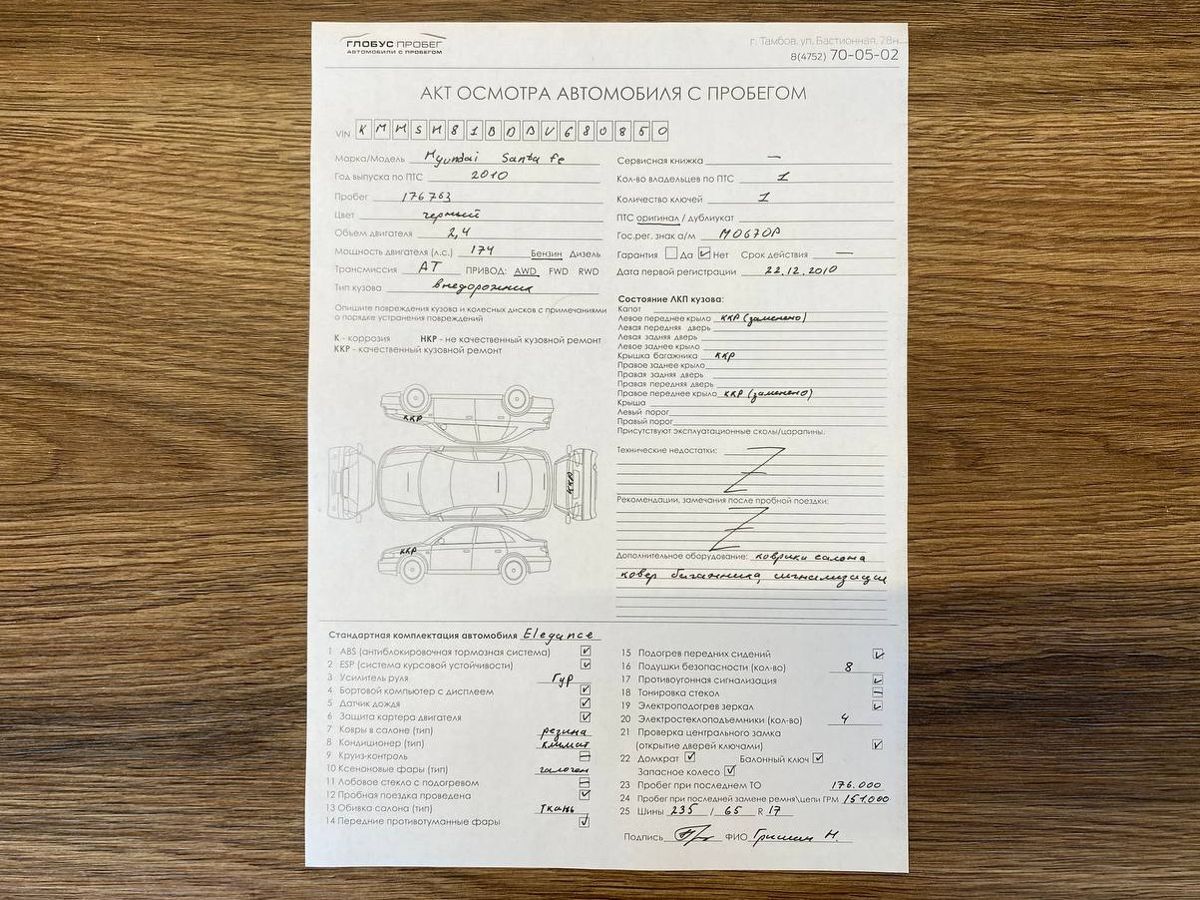 ГЛОБУС ПРОБЕГ
АВТОМОБИЛИ С ПРОБЕГОМ
г. Тамбов, ул. Бастионная, 28н
8(4752) 70-05-02
АКТ ОСМОТРА АВТОМОБИЛЯ С ПРОБЕГОМ
VIN KMHSH81BDBU680850
Марка/Модель Hyundai Santa fe
Год выпуска по ПТС 2010
Пробег 176763
Цвет черный
Объем двигателя 2,4
Мощность двигателя (л.с.) 174 Бензин Дизель
Трансмиссия AT ПРИВОД: AWD FWD RWD
Тип кузова внедорожник
Опишите повреждения кузова и колесных дисков с примечаниями
о порядке устранения повреждений
К - коррозия НКР - не качественный кузовной ремонт
ККР - качественный кузовной ремонт
ККР
ККР
ККР
Сервисная книжка —
Кол-во владельцев по ПТС 1
Количество ключей 1
ПТС оригинал / дубликат
Гос.рег. знак а/м М067ОР
Гарантия Да Нет Срок действия —
Дата первой регистрации 22.12.2010
Состояние ЛКП кузова:
Капот
Левое переднее крыло ККР (заменено)
Левая передняя дверь
Левая задняя дверь
Левое заднее крыло
Крышка багажника ККР
Правое заднее крыло
Правая задняя дверь
Правая передняя дверь
Правое переднее крыло ККР (заменено)
Крыша
Левый порог
Правый порог
Присутствуют эксплуатационные сколы/царапины.
Технические недостатки:
Рекомендации, замечания после пробной поездки:
Дополнительное оборудование: коврики салона
ковер багажника, сигнализация
Стандартная комплектация автомобиля Elegance
1 ABS (антиблокировочная тормозная система)
2 ESP (система курсовой устойчивости)
3 Усилитель руля Гур
4 Бортовой компьютер с дисплеем
5 Датчик дождя
6 Защита картера двигателя
7 Ковры в салоне (тип) резина
8 Кондиционер (тип) климат
9 Круиз-контроль
10 Ксеноновые фары (тип) галоген
11 Лобовое стекло с подогревом
12 Пробная поездка проведена
13 Обивка салона (тип) ткань
14 Передние противотуманные фары
15 Подогрев передних сидений
16 Подушки безопасности (кол-во) 8
17 Противоугонная сигнализация
18 Тонировка стекол
19 Электроподогрев зеркал
20 Электростеклоподъемники (кол-во) 4
21 Проверка центрального замка
(открытие дверей ключами)
22 Домкрат Балонный ключ
Запасное колесо
23 Пробег при последнем ТО 176.000
24 Пробег при последней замене ремня\цепи ГРМ 151.000
25 Шины 235 / 65 R 17
Подпись ФИО Гришин Н.